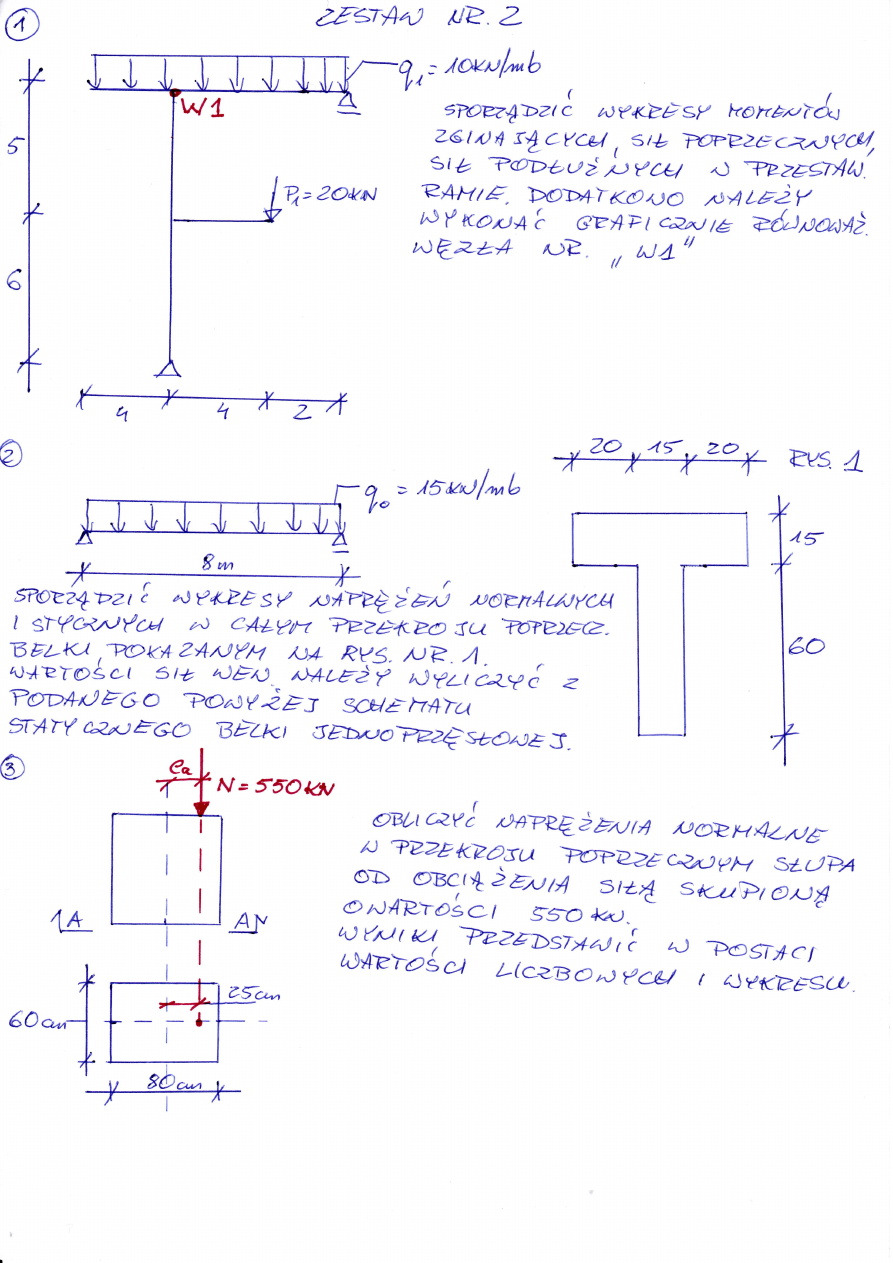 1
ZESTAW NR. 2
q1 = 10KN/mb
W1
5
P1 = 20KN
6
4
4
2
SPORZĄDZIĆ WYKRESY MOMENTÓW
ZGINAJĄCYCH, SIŁ POPRZECZNYCH,
SIŁ PODŁUŻNYCH W PRZESTAW.
RAMIE. DODATKOWO NALEŻY
WYKONAĆ GRAFICZNIE RÓWNOWAŻ.
WĘZŁA NR. „W1"
2
q0 = 15KN/mb
8m
20 15 20
RYS. 1
15
60
SPORZĄDZIĆ WYKRESY NAPRĘŻEŃ NORMALNYCH
I STYCZNYCH W CAŁYM PRZEKROJU POPRZECZ.
BELKI POKAZANYM NA RYS. NR. 1.
WARTOŚCI SIŁ WEW. NALEŻY WYLICZYĆ Z
PODANEGO POWYŻEJ SCHEMATU
STATYCZNEGO BELKI JEDNOPRZĘSŁOWEJ.
3
ea
N = 550KN
A A
25cm
60cm
80cm
OBLICZYĆ NAPRĘŻENIA NORMALNE
W PRZEKROJU POPRZECZNYM SŁUPA
OD OBCIĄŻENIA SIŁĄ SKUPIONĄ
O WARTOŚCI 550 KN.
WYNIKI PRZEDSTAWIĆ W POSTACI
WARTOŚCI LICZBOWYCH I WYKRESU.